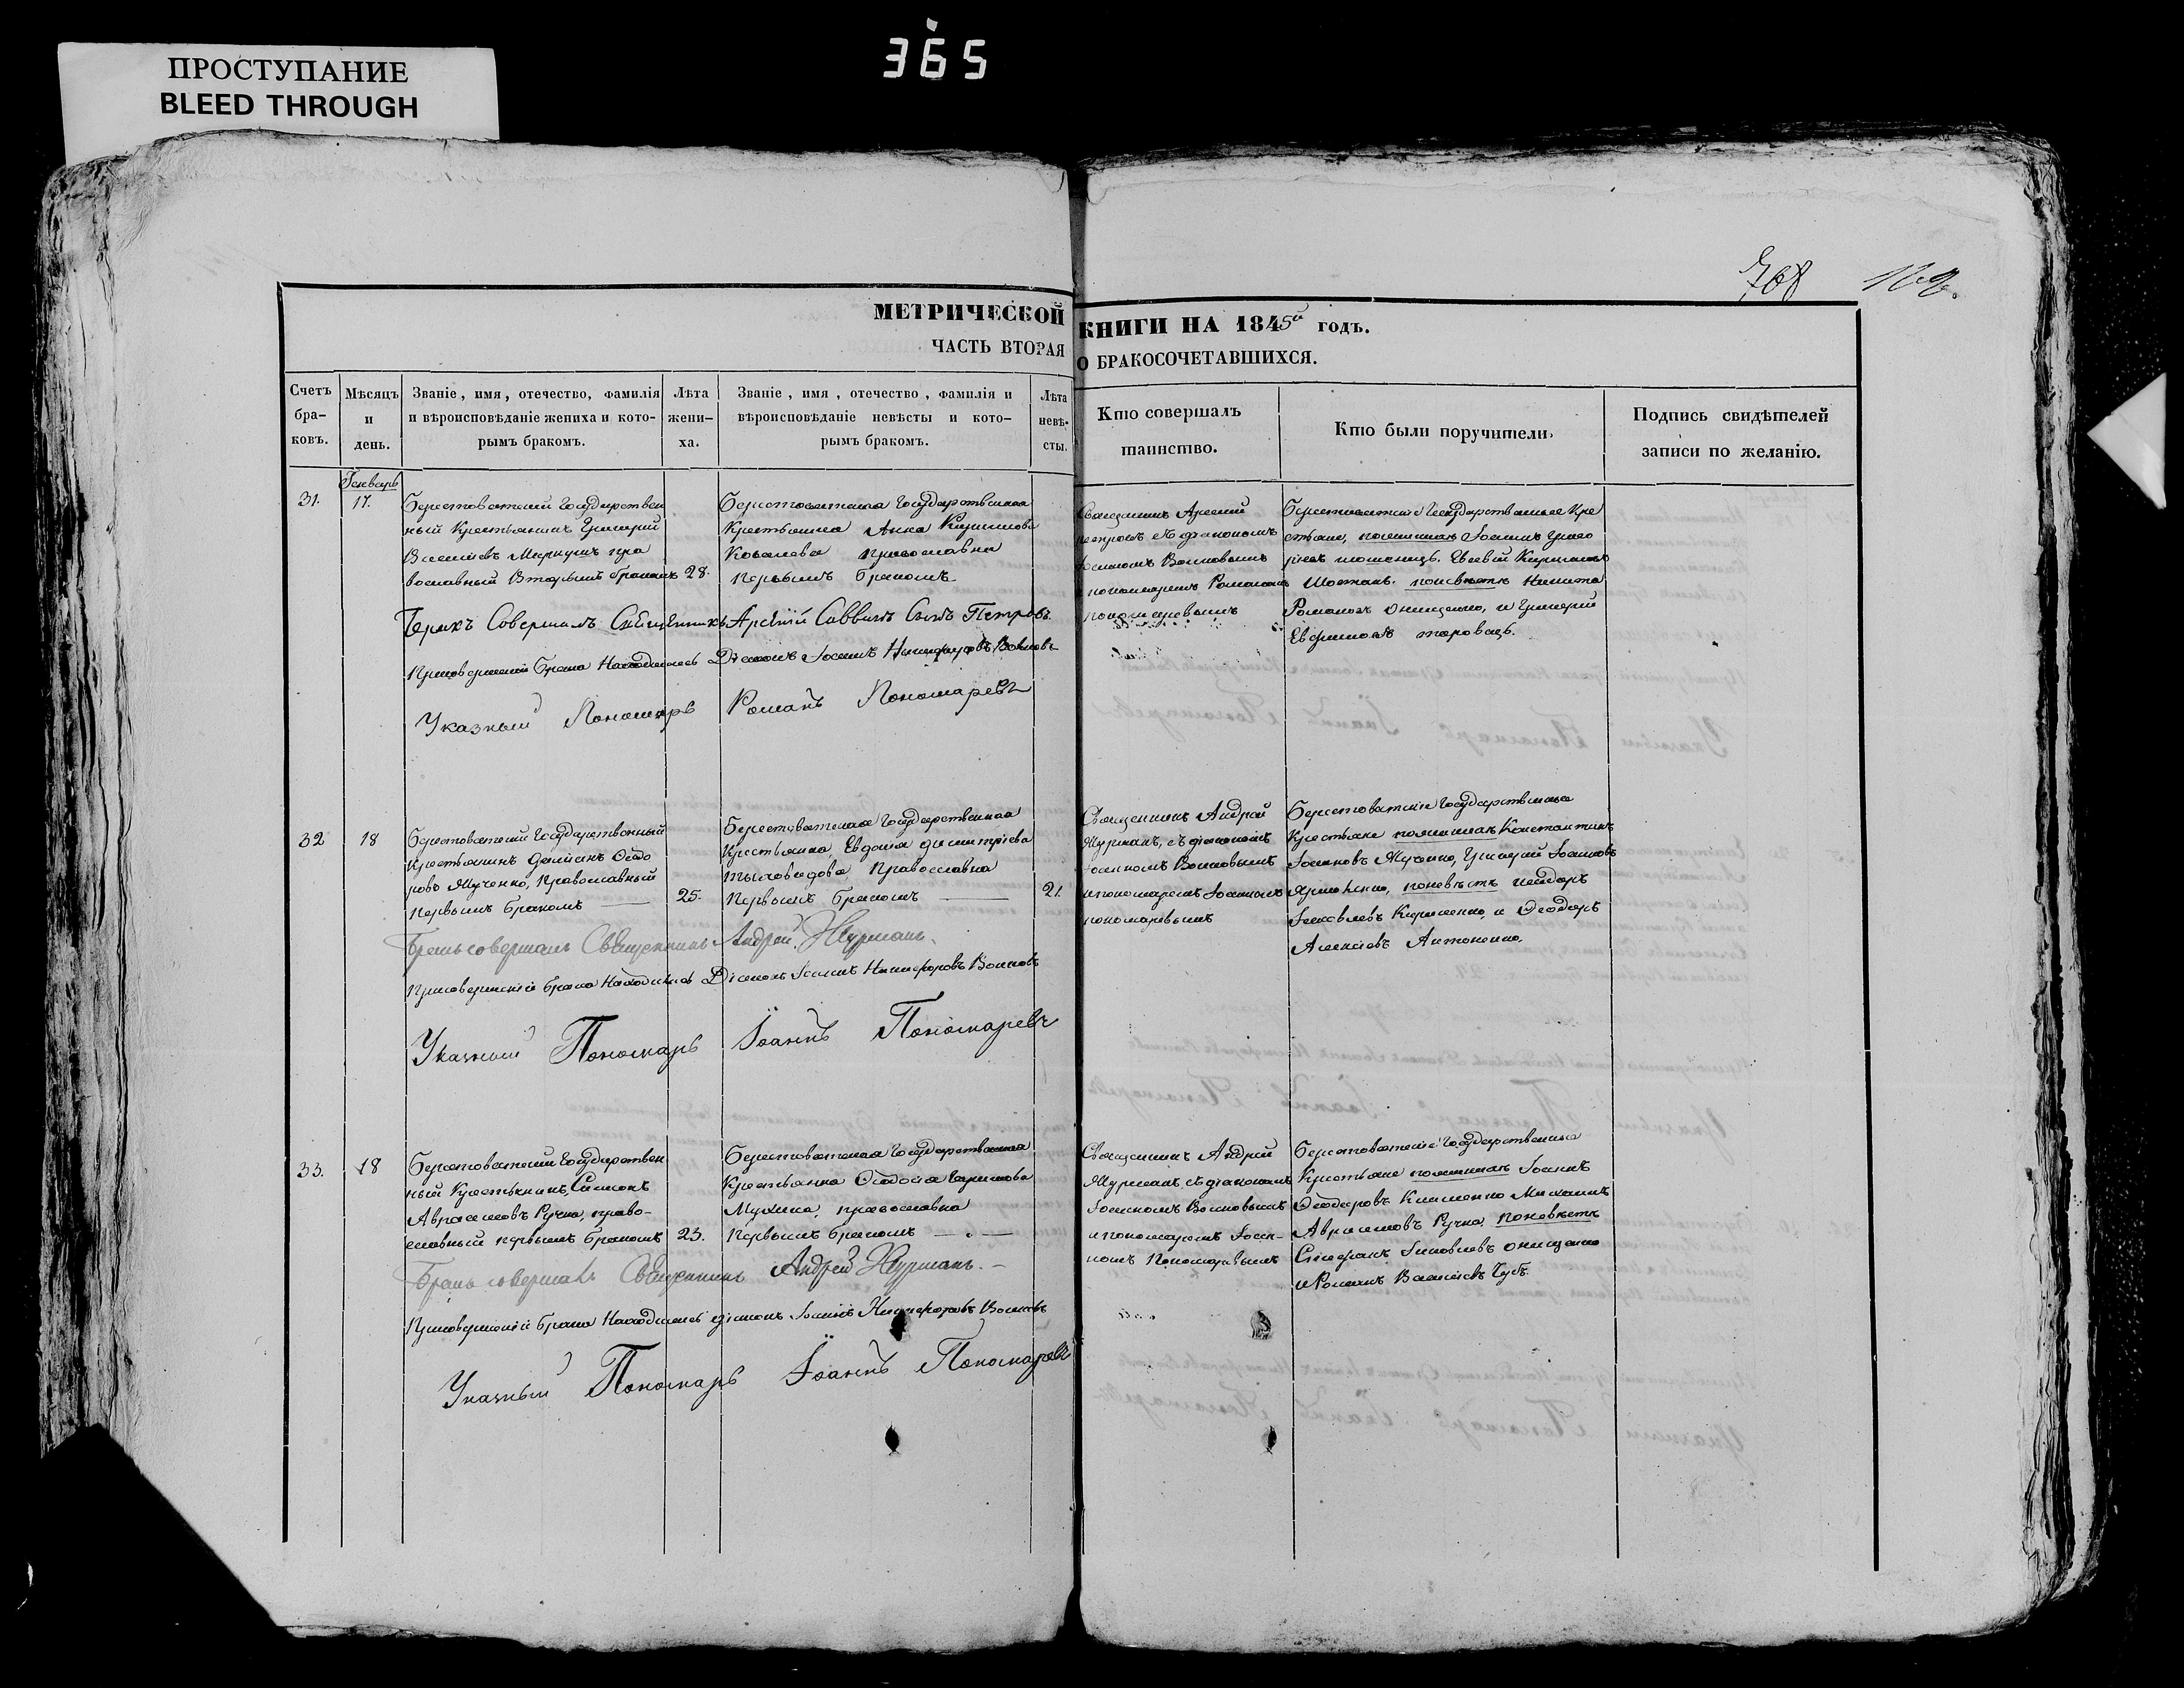 365
ПРОСТУПАНИЕ
BLEED THROUGH
768 162.
МЕТРИЧЕСКОЙ КНИГИ НА 1845й годъ.
ЧАСТЬ ВТОРАЯ О БРАКОСОЧЕТАВШИХСЯ.
Счетъ бра-ковъ.
Мѣсяцъ и день.
Званіе, имя, отечество, фамилія
и вѣроисповѣданіе жениха и кото-
рымъ бракомъ.
Лѣта жени-ха.
Званіе, имя, отечество, фамилія и
вѣроисповѣданіе невѣсты и кото-
рымъ бракомъ.
Лѣта невѣ-сты.
Кто совершалъ
таинство.
Кто были поручители.
Подпись свидѣтелей
записи по желанію.
Генварь
31.
17.
Берестоватский Государствен
ный Крестьянинъ Григорий
православный Вторымъ бракомъ
28.
Берестоватская Государственная
Крестьянка Анна Кириллова
Ковалева православна
первымъ бракомъ
Священникъ Арсений
Петровъ съ діакономъ
Іоанномъ Воиновымъ
и пономаремъ Романомъ
пономаревымъ
Берестоватские Государственные Кре
стьяне, по женихѣ Іоаннъ
по невѣстѣ Никита
Романовъ Онищенко, и Григорий
Бракъ Совершалъ Священникъ Арсений Саввинъ Сынъ Петровъ.
При совершении брака Находился Діаконъ Іоаннъ Никифоровъ Воиновъ
Указный Пономарь Романъ Пономаревъ
32
18
Берестоватский Государственный
Крестьянинъ Ѳедо
ровъ Мученко, Православный
первымъ бракомъ
25.
Берестоватская Государственная
Крестьянка Евдокия Димитріева
Православна
первымъ бракомъ
21.
Священникъ Андрей
Журманъ, съ діакономъ
Іоанномъ Воиновымъ
и пономаремъ Іоанномъ
пономаревымъ
Берестоватские Государственные
Крестьяне по женихѣ Константинъ
Іоанновъ Мученко, Григорий Іоанновъ
Ярмоленко, по невѣстѣ
Яковлевъ Кириченко, и Ѳеодоръ
Алексіевъ Антоненко.
Бракъ совершалъ Священникъ Андрей Журманъ.
При совершении брака Находился Діаконъ Іоаннъ Никифоровъ Воиновъ
Указный Пономарь Іоаннъ Пономаревъ
33.
18
Берестоватский Государствен
ный Крестьянинъ, Симеонъ
Авраамовъ Ручка, право-
славный первымъ бракомъ
23.
Берестоватская Государственная
Крестьянка Ѳеодосия
православна
первымъ бракомъ
Священникъ Андрей
Журманъ съ діакономъ
Іоанномъ Воиновымъ
и пономаремъ Іоан-
номъ Пономаревымъ
Берестоватские Государственные
Крестьяне по женихѣ Іоаннъ
Ѳеодоровъ Клименко Михаилъ
Авраамовъ Ручка, по невѣстѣ
Стефанъ Яковлевъ Онищенко
и Романъ Василіевъ Чубъ.
Бракъ совершалъ Священникъ Андрей Журманъ.
При совершении брака Находился діаконъ Іоаннъ Никифоровъ Воиновъ
Указный Пономарь Іоаннъ Пономаревъ